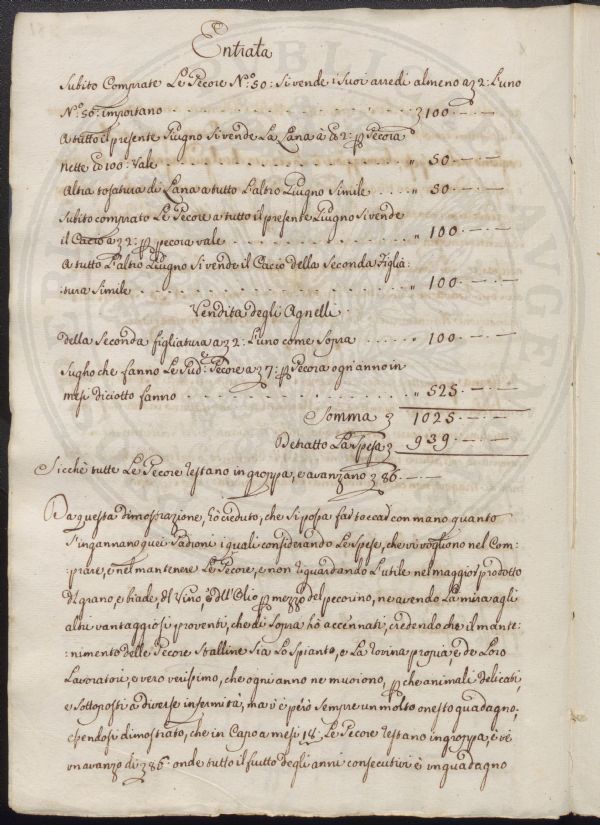 Entrata
Subito Comprate Le Pecore N.º 50: Si vende i Suoi arredi almeno a ʒ 2: l'uno
N.º 50: importano ʒ 100
A tutto il presente Giugno Si vende La Lana a lb 2: p Pecora
nette lb 100: Vale " 50
Altra tosatura di Lana a tutto l'altro Giugno Simile " 50
Subito comprato Le Pecore a tutto il presente Giugno Si vende
il Cacio a ʒ 2: p pecora vale " 100
A tutto l'altro Giugno Si vende il Cacio della Seconda Figlia:
:tura Simile " 100
Vendita degli Agnelli
Della Seconda figliatura a ʒ 2: l'uno come Sopra " 100
Sugho che fanno Le Sud.e Pecore a ʒ 7: p Pecora ogn'anno in
mesi diciotto fanno " 525
Somma ʒ 1025
Detratto La Spesa ʒ 939
Sicchè tutte Le Pecore restano in groppa, e avanzano ʒ 86
Da questa dimostrazione, hò creduto, che Si possa far toccad con mano quanto
S'ingannano quei Padroni i quali considerando Le Spese, che vi vogliono nel Com:
:prare, e nel mantenere Le Pecore, e non riguardando L'utile nel maggior prodotto
del grano, e biade, del Vino, e dell'Olio p mezzo del pecorino, ne avendo La mira agli
altri vantaggiosi proventi, che di Sopra hò accennati, credendo che il mante:
:nimento delle Pecore Stalline Sia Lo Spianto, e La rovina propria, e de Loro
Lavoratori, e vero verissimo, che ogni anno ne muoiono, p che animali delicati,
e Sottoposti a diverse infermità, ma v'è però Sempre un molto onesto guadagno,
essendosi dimostrato, che in Capo a mesi 18: Le Pecore restano in groppa, e v'è
un avanzo di ʒ 86: onde tutto il frutto degli anni consecutivi è un guadagno